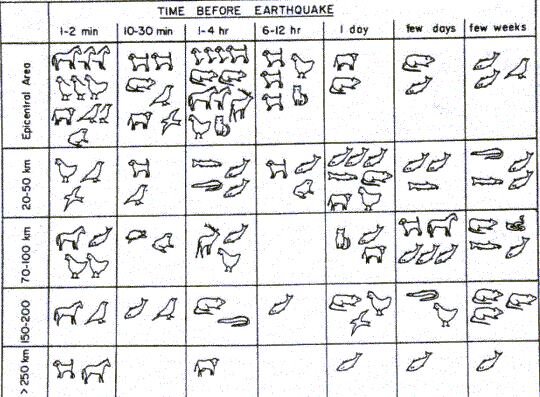 TIME BEFORE EARTHQUAKE
1-2 min 10-30 min 1-4 hr 6-12 hr 1 day few days few weeks
Epicentral Area
20-50 km
70-100 km
150-200
> 250 km